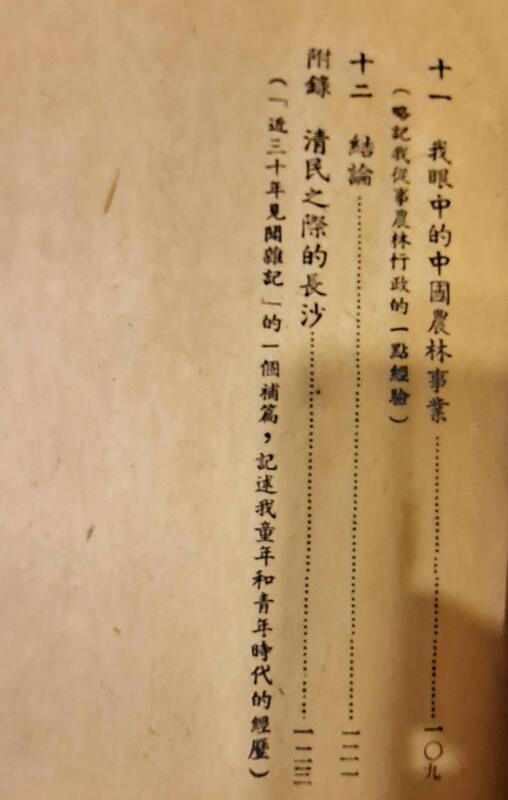 十一 我眼中的中國農林事業……一〇九
（略記我從事農林行政的一點經驗）
十二 結論……一二一
附錄 清民之際的長沙……一二三
（「近三十年見聞雜記」的一個補篇，記述我童年和青年時代的經歷）